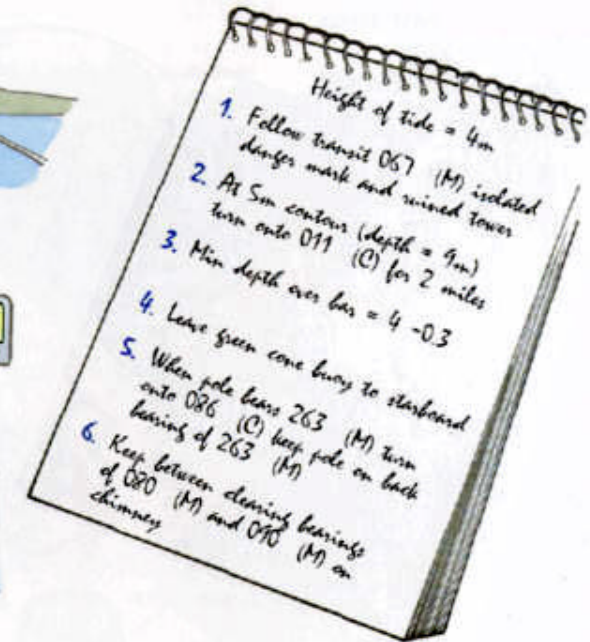 Height of tide = 4m
1. Follow transit 067 (M) isolated
danger mark and ruined tower
2. At 5m contour (depth = 9m)
turn onto 011 (C) for 2 miles
3. Min depth over bar = 4 - 0.3
4. Leave green cone buoy to starboard
5. When pole bears 263 (M) turn
onto 086 (C) keep pole on back
bearing of 263 (M)
6. Keep between clearing bearings
of 080 (M) and 090 (M) on
chimney